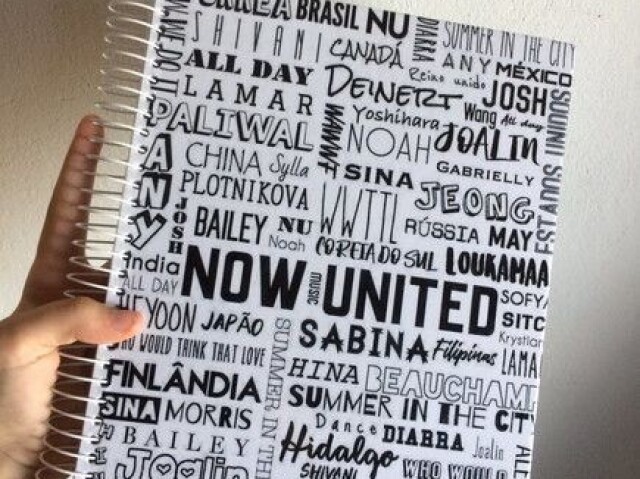 BRASIL NU
SHIVANI
CANADÁ
DIARRA
SUMMER IN THE CITY
ALL DAY
Reino unido
ANY
MÉXICO
LAMAR
DEINERT
JOSH
PALIWAL
WWWF
Yoshihara
Wang
All day
NOAH
JOALIN
CHINA
Sylla
SINA
GABRIELLY
ANY
PLOTNIKOVA
WWTTL
JEONG
JOSH
BAILEY
NU
Noah
COREIA DO SUL
RÚSSIA
MAY
India
LOUKAMAA
ALL DAY
NOW UNITED
music
SOFYA
HEYOON
JAPÃO
SABINA
Filipinas
SITC
Krystian
WHO WOULD THINK THAT LOVE
SUMMER IN THE
LAMA
FINLÂNDIA
HINA
BEAUCHAMP
SINA
MORRIS
SUMMER IN THE CITY
Dance
DIARRA
Joalin
BAILEY
Hidalgo
Joalin
SHIVANI
WHO WOULD